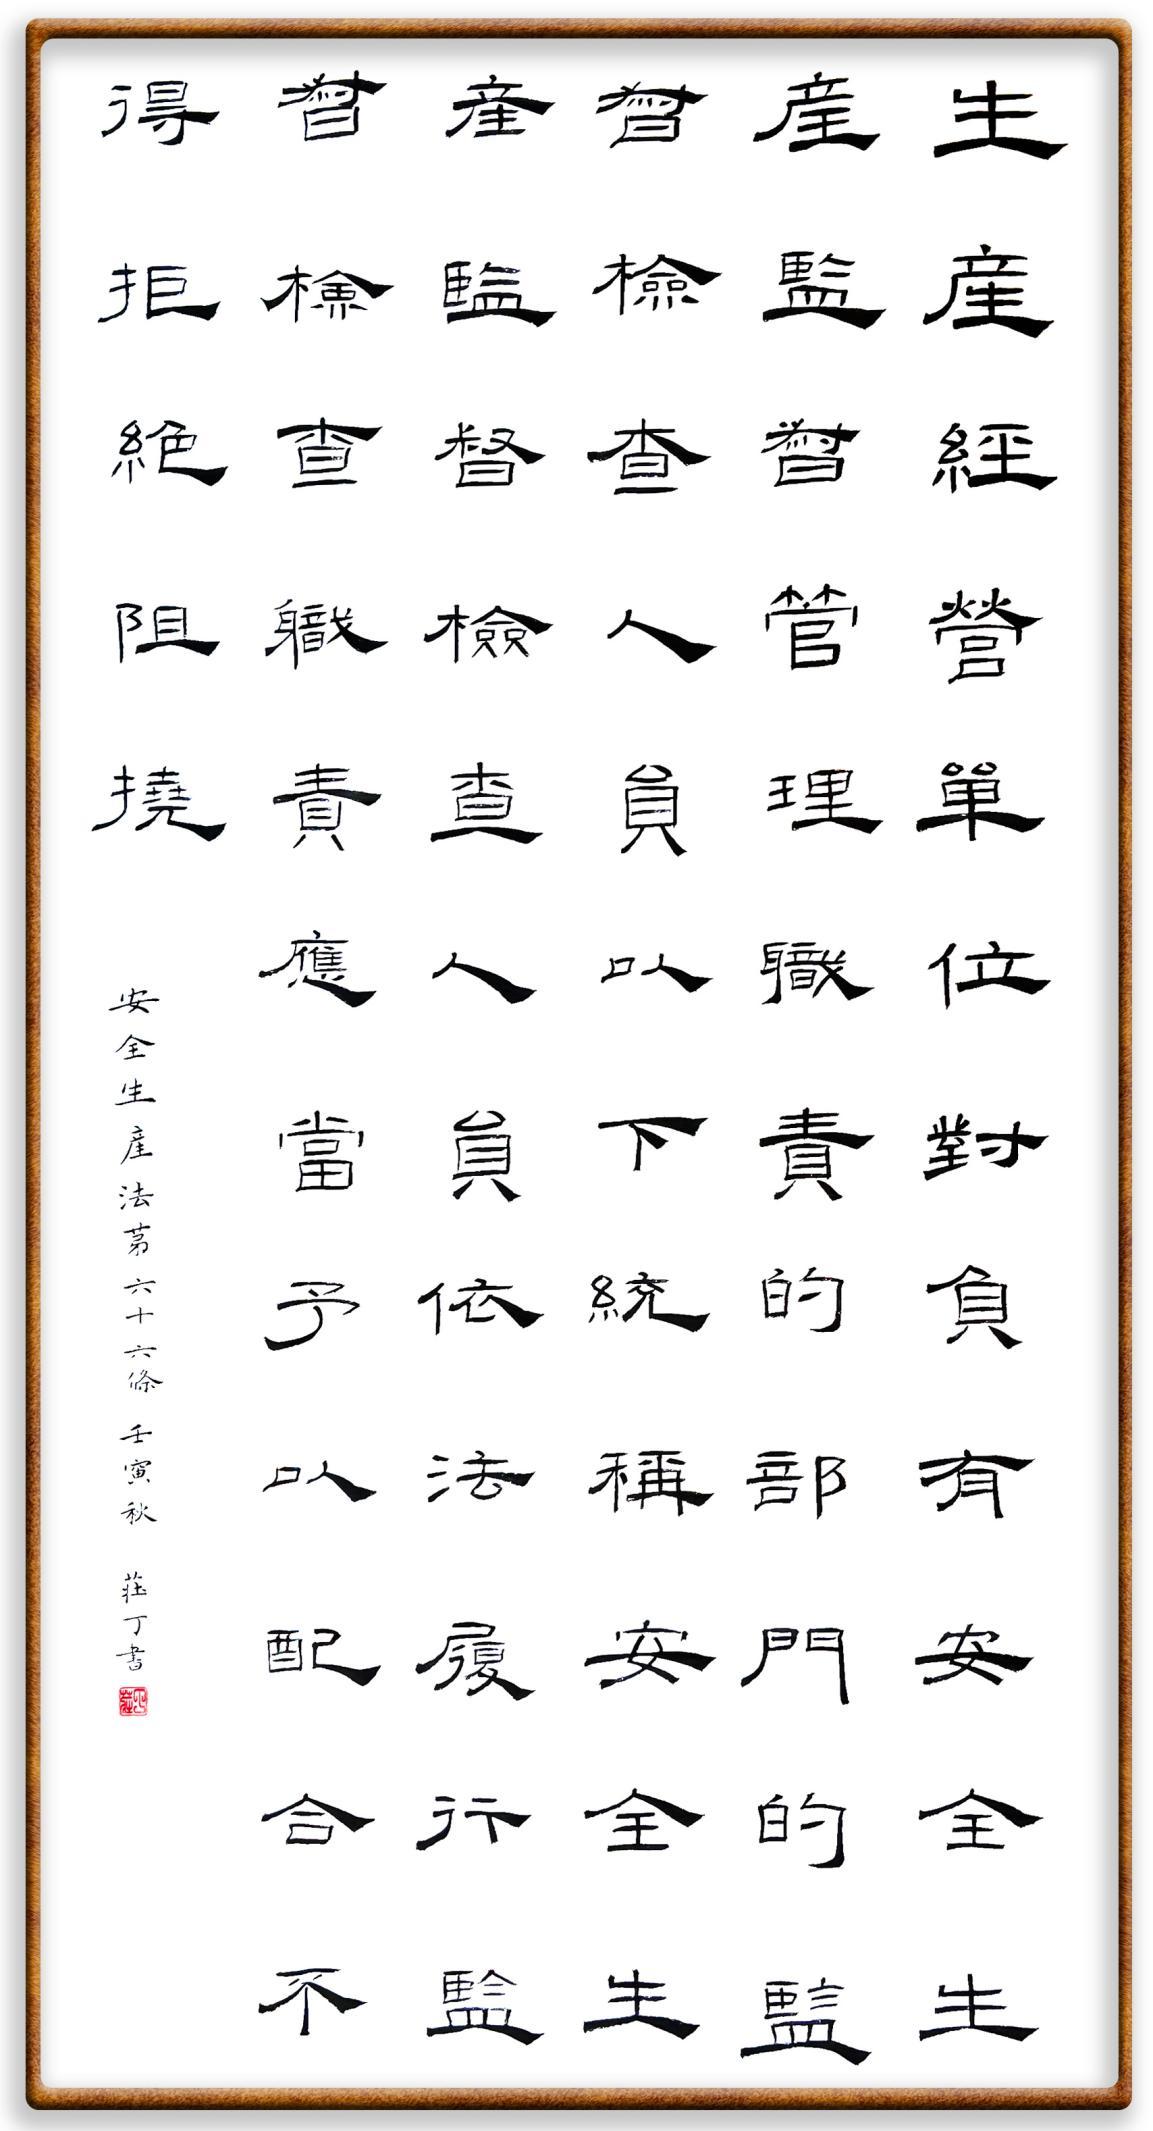 生產經營單位對負有安全生
產監督管理職責的部門的監
督檢查人員以下統稱安全生
產監督檢查人員依法履行監
督檢查職責應當予以配合不
得拒絕阻撓
安全生產法第六十六條 壬寅秋 莊丁書